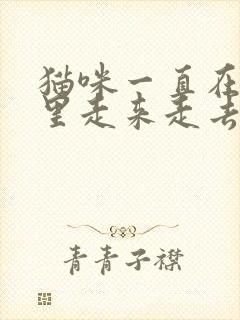 猫咪一直在
里走来走去
青青子襟